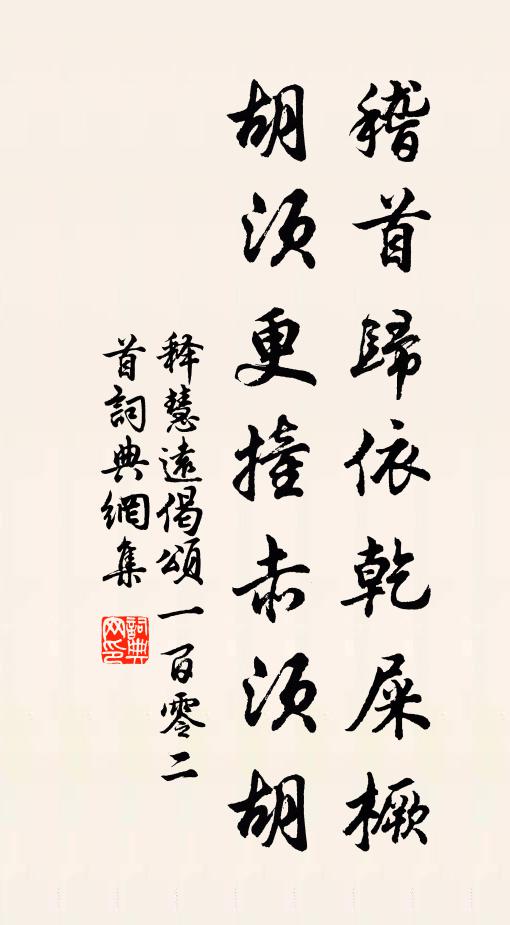 稽首歸依乾屎橛
胡須更撞赤須胡
釋慧遠偈頌一百零二
首詞典網集
詞典网印